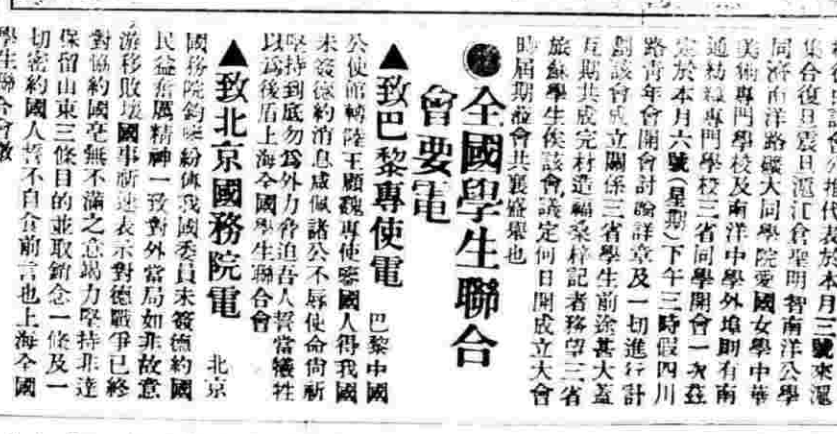 集合復旦震日滬江倉聖明智南洋公學
同濟南洋路礦大同學院愛國女學中華
美術專門學校及南洋中學外埠則有南
通紡織專門學校三省同學開會一次茲
定於本月六號(星期)下午三時假四川
路青年會開會討論詳章及一切進行計
劃該會成立關係三省學生前途甚大蓋
互期共成完材造福桑梓記者務望三省
旅蘇學生俟該會議定何日開成立大會
時屆期蒞會共襄盛舉也
●全國學生聯合
會要電
▲致巴黎專使電 巴黎中國
公使館轉陸王顧魏專使鑒國人得我國
未簽德約消息咸佩諸公不辱使命尙祈
堅持到底勿爲外力脅迫吾人誓當犧牲
以爲後盾上海全國學生聯合會
▲致北京國務院電 北京
國務院鈞鑒紛傳我國委員未簽德約國
民益奮厲精神一致對外當局如非故意
游移敗壞國事祈速表示對德戰爭已終
對協約國毫無不滿之意竭力堅持非達
保留山東三條目的並取銷念一條及一
切密約國人誓不自食前言也上海全國
學生聯合會